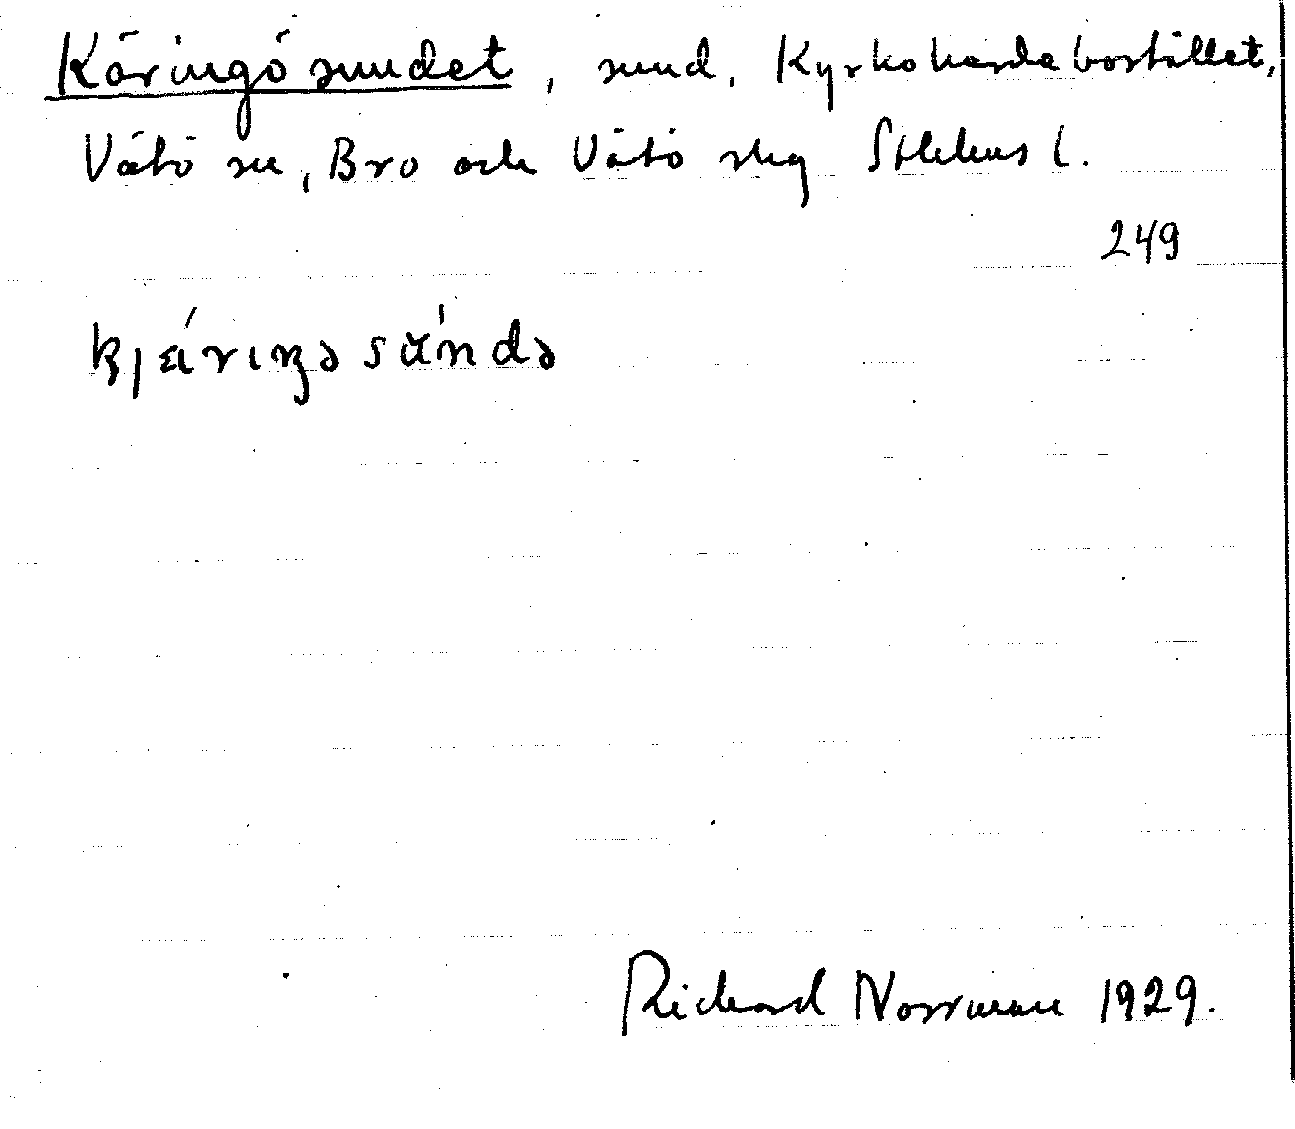 Käringösundet, sund, Kyrkoherdebostället,
Vätö sn, Bro och Vätö skg Sthlms l.
249
Richard Norrman 1929.